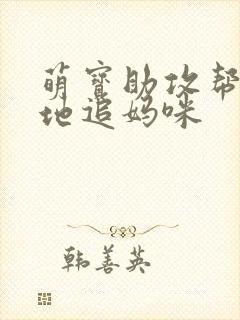 萌寶助攻帮
地追妈咪
韩善英